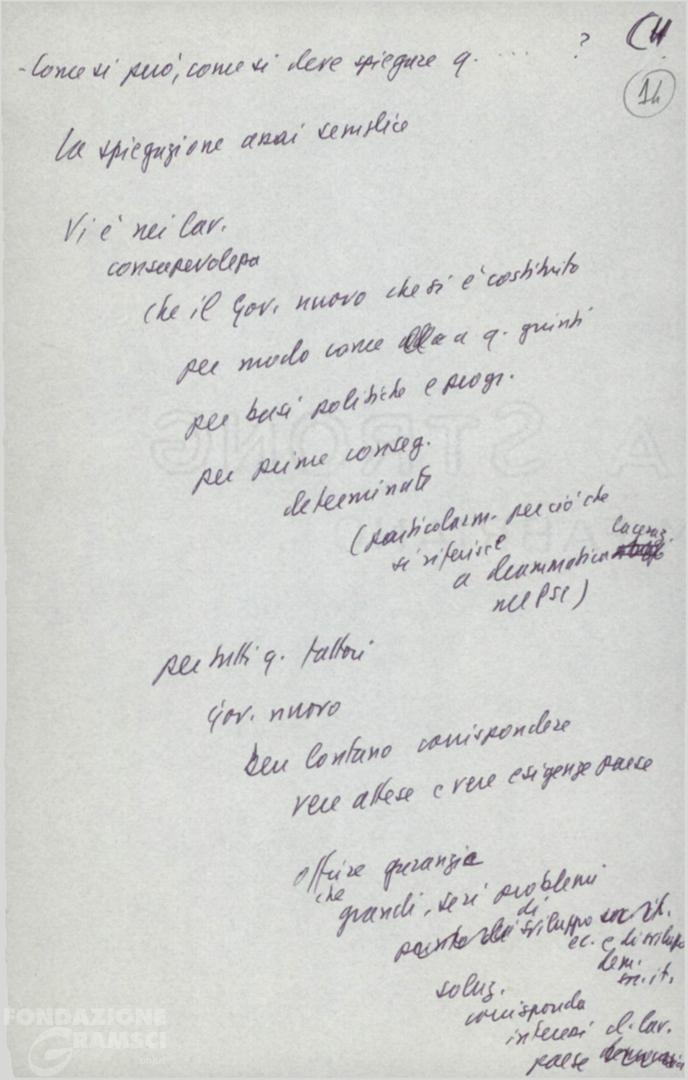 CH
14
- Come si può, come si deve spiegare q. .... ?
La spiegazione assai semplice
Vi è nei lav.
consapevolezza
che il Gov. nuovo che si è costituito
per modo come a q. giunti
per basi politiche e progr.
per prime conseg.
determinate
(particolarm. per ciò che
si riferisce
a drammatica laceraz.
nel PSI)
per tutti q. fattori
Gov. nuovo
ben lontano corrispondere
vere attese e vere esigenze paese
offrire garanzie
che
grandi, seri problemi
di sviluppo
ec. e di svilupp
dem.
soc. it.
soluz.
corrisponda
interessi d. lav.
paese
FONDAZIONE
GRAMSCI